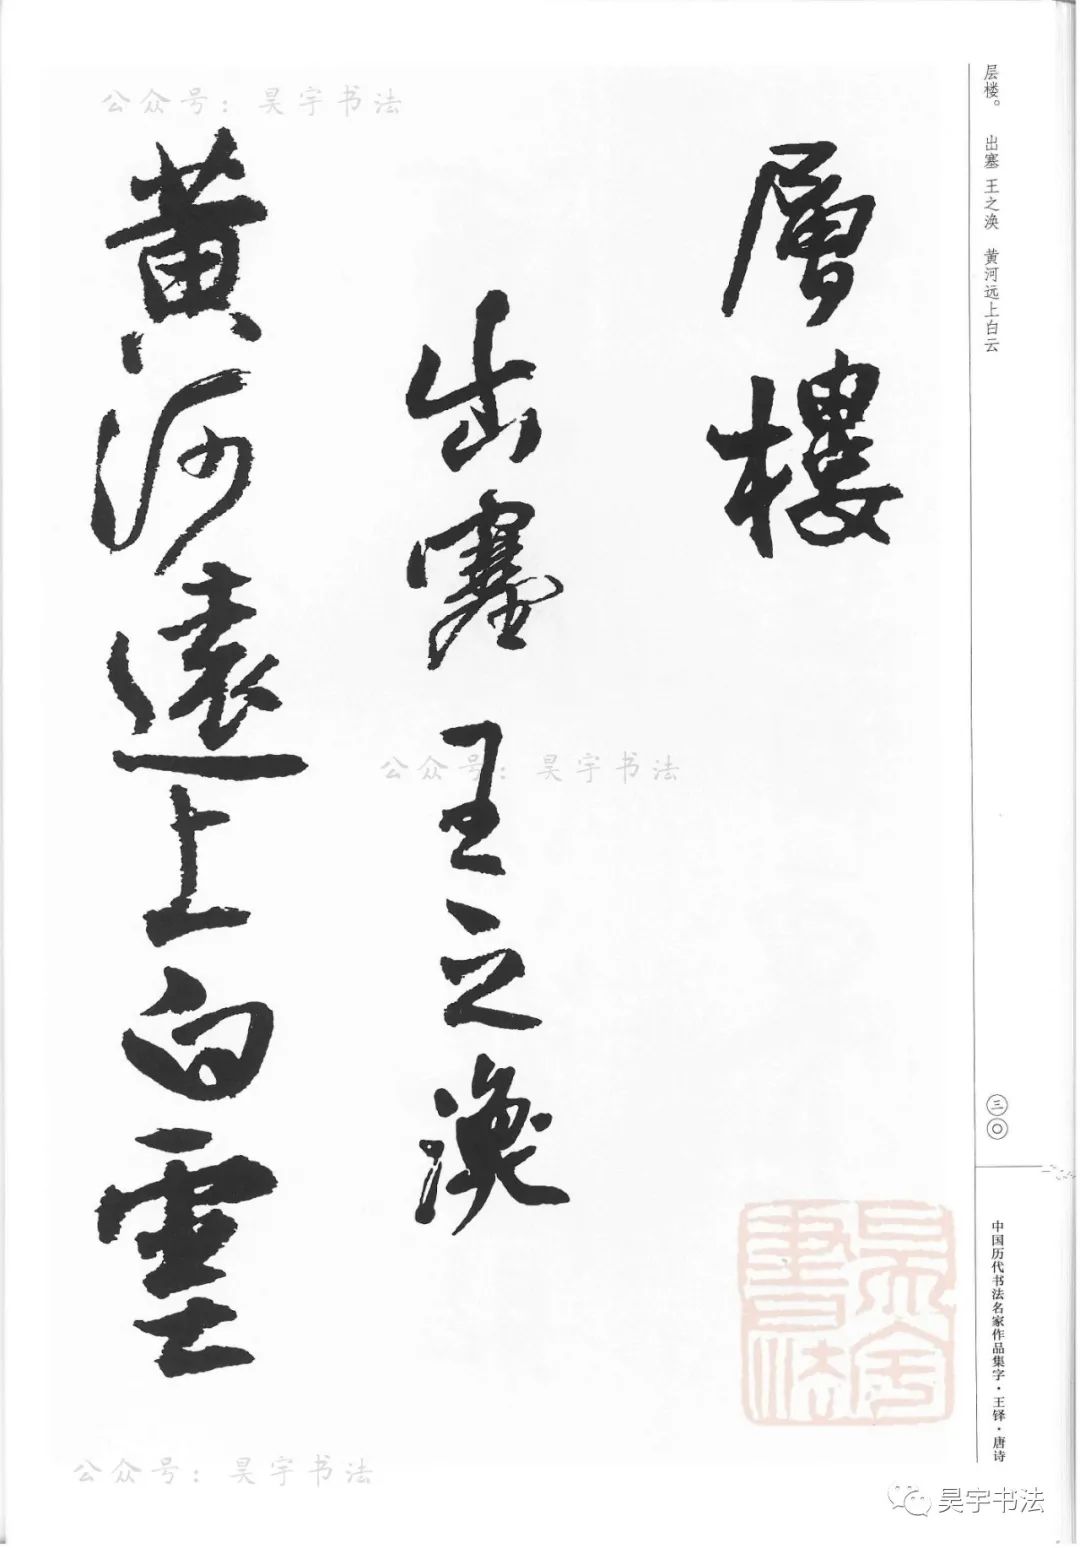 层楼。 出塞 王之涣 黄河远上白云
三〇
中国历代书法名家作品集字·王铎·唐诗
層樓
出塞王之渙
黄河遠上白雲
公众号：昊宇书法
公众号：昊宇书法
公众号：昊宇书法
昊宇書法
昊宇书法